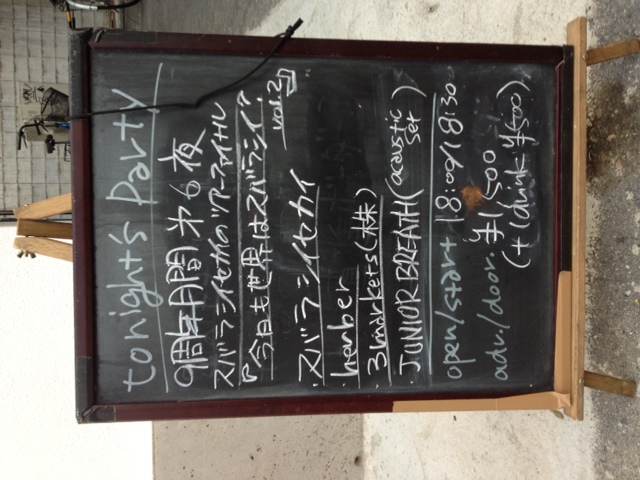 tonight's Party
9周年月間 第6夜
スバラシイセカイのツアーファイナル
『今日も世界はスバラシイ? vol.2』
・スバラシイセカイ
・henber
・3markets(株)
・JUNIOR BREATH (acoustic set)
open/start 18:00/18:30
adv./door. ¥1,500
(+1drink ¥500)